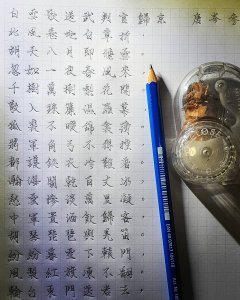 白雪歌送武判官歸京 唐 岑參
北風捲地白草折，
胡天八月即飛雪。
忽如一夜春風來，
千樹萬樹梨花開。
散入珠簾濕羅幕，
狐裘不暖錦衾薄。
將軍角弓不得控，
都護鐵衣冷難著。
瀚海闌干百丈冰，
愁雲慘淡萬里凝。
中軍置酒飲歸客，
胡琴琵琶與羌笛。
紛紛暮雪下轅門，
風掣紅旗凍不翻。
輪臺東門送君去，